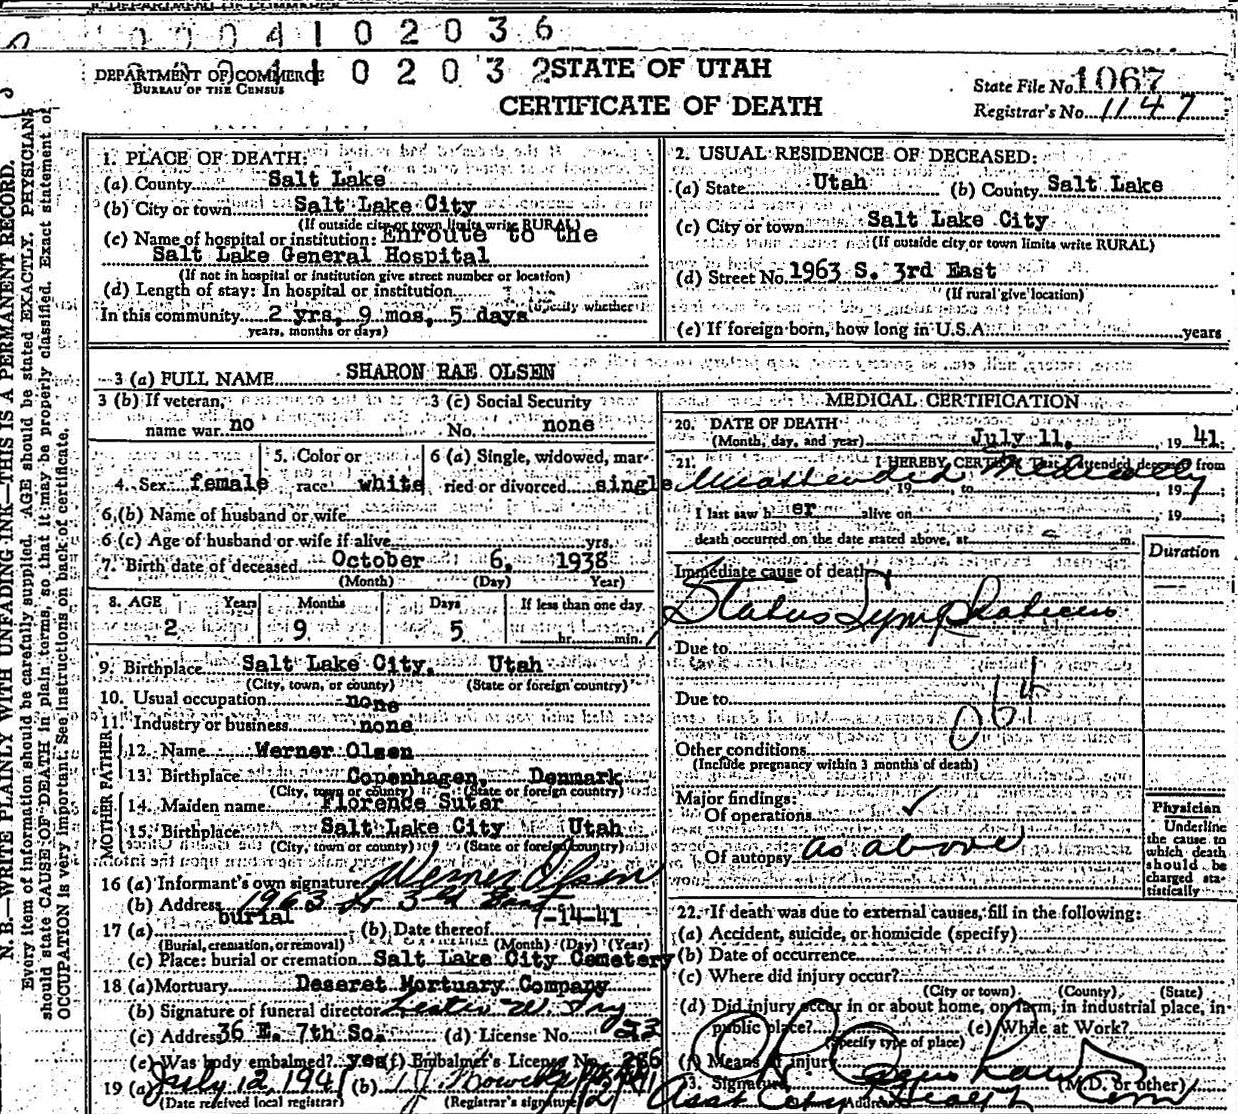 0004102036
DEPARTMENT OF COMMERCE
BUREAU OF THE CENSUS
STATE OF UTAH
CERTIFICATE OF DEATH
State File No. 1067
Registrar's No. 1147
N. B.—WRITE PLAINLY WITH UNFADING INK—THIS IS A PERMANENT RECORD.
Every item of information should be carefully supplied. AGE should be stated EXACTLY. PHYSICIANS
should state CAUSE OF DEATH in plain terms, so that it may be properly classified. Exact statement of
OCCUPATION is very important. See instructions on back of certificate.
1. PLACE OF DEATH:
(a) County Salt Lake
(b) City or town Salt Lake City
(If outside city or town limits write RURAL)
(c) Name of hospital or institution: Enroute to the
Salt Lake General Hospital
(If not in hospital or institution give street number or location)
(d) Length of stay: In hospital or institution
(Specify whether
In this community 2 yrs, 9 mos, 5 days
years, months or days)
2. USUAL RESIDENCE OF DECEASED:
(a) State Utah (b) County Salt Lake
(c) City or town Salt Lake City
(If outside city or town limits write RURAL)
(d) Street No. 1963 S. 3rd East
(If rural give location)
(e) If foreign born, how long in U.S.A. years
3 (a) FULL NAME SHARON RAE OLSEN
3 (b) If veteran, name war no
3 (c) Social Security No. none
4. Sex female
5. Color or race white
6 (a) Single, widowed, married or divorced single
6 (b) Name of husband or wife
6 (c) Age of husband or wife if alive yrs.
7. Birth date of deceased October 6, 1938
(Month) (Day) Year)
8. AGE Years Months Days If less than one day
2 9 5 hr. min.
9. Birthplace Salt Lake City, Utah
(City, town, or county) (State or foreign country)
10. Usual occupation none
11. Industry or business none
FATHER
12. Name Werner Olsen
13. Birthplace Copenhagen, Denmark
(City, town or county) (State or foreign country)
MOTHER
14. Maiden name Florence Suter
15. Birthplace Salt Lake City Utah
(City, town or county) (State or foreign country)
16 (a) Informant's own signature Werner Olsen
(b) Address 1963 So 3rd East
17 (a) burial (b) Date thereof 7-14-41
(Burial, cremation, or removal) (Month) (Day) (Year)
(c) Place: burial or cremation Salt Lake City Cemetery
18 (a) Mortuary Deseret Mortuary Company
(b) Signature of funeral director Lester W.
(c) Address 36 E. 7th So. (d) License No. 23
(e) Was body embalmed? yes (f) Embalmer's License No. 286
19 (a) July 12, 1941 (b)
(Date received local registrar) (Registrar's signature)
MEDICAL CERTIFICATION
20. DATE OF DEATH
(Month, day, and year) July 11, 1941;
21. I HEREBY CERTIFY That I attended deceased from
Unattended Medically , 19 , to , 19 ;
I last saw her alive on , 19 ;
death occurred on the date stated above, at m.
Duration
Immediate cause of death
Status Lymphaticus
Due to
Due to
064
Other conditions
(Include pregnancy within 3 months of death)
Major findings:
Of operations ✓
Of autopsy as above
Physician
Underline
the cause to
which death
should be
charged sta-
tistically
22. If death was due to external causes, fill in the following:
(a) Accident, suicide, or homicide (specify)
(b) Date of occurrence
(c) Where did injury occur?
(City or town) (County) (State)
(d) Did injury occur in or about home, on farm, in industrial place, in
public place? (e) While at Work?
(Specify type of place)
(f) Means of injury
23. Signature (M.D. or other)
Address